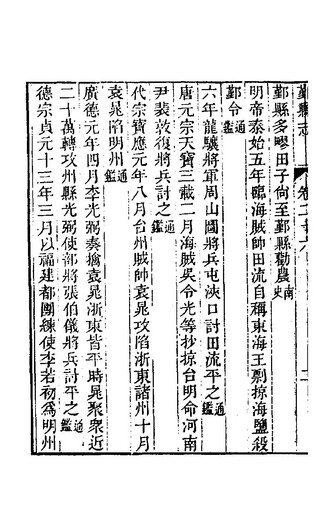 鄞縣志
卷二
二
鄞縣多疁田子尙至鄞縣勸農南史
明帝泰始五年臨海賊帥田流自稱東海王剽掠海鹽殺
鄞令通鑑
六年龍驤將軍周山圖將兵屯浹口討田流平之通鑑
唐元宗天寶三載二月海賊吳令光等抄掠台明命河南
尹裴敦復將兵討之通鑑
代宗寶應元年八月台州賊帥袁晁攻陷浙東諸州十月
袁晁陷明州通鑑
廣德元年四月李光弼奏擒袁晁浙東皆平時晁聚眾近
二十萬轉攻州縣光弼使部將張伯儀將兵討平之通鑑
德宗貞元十三年三月以福建都團練使李若初爲明州